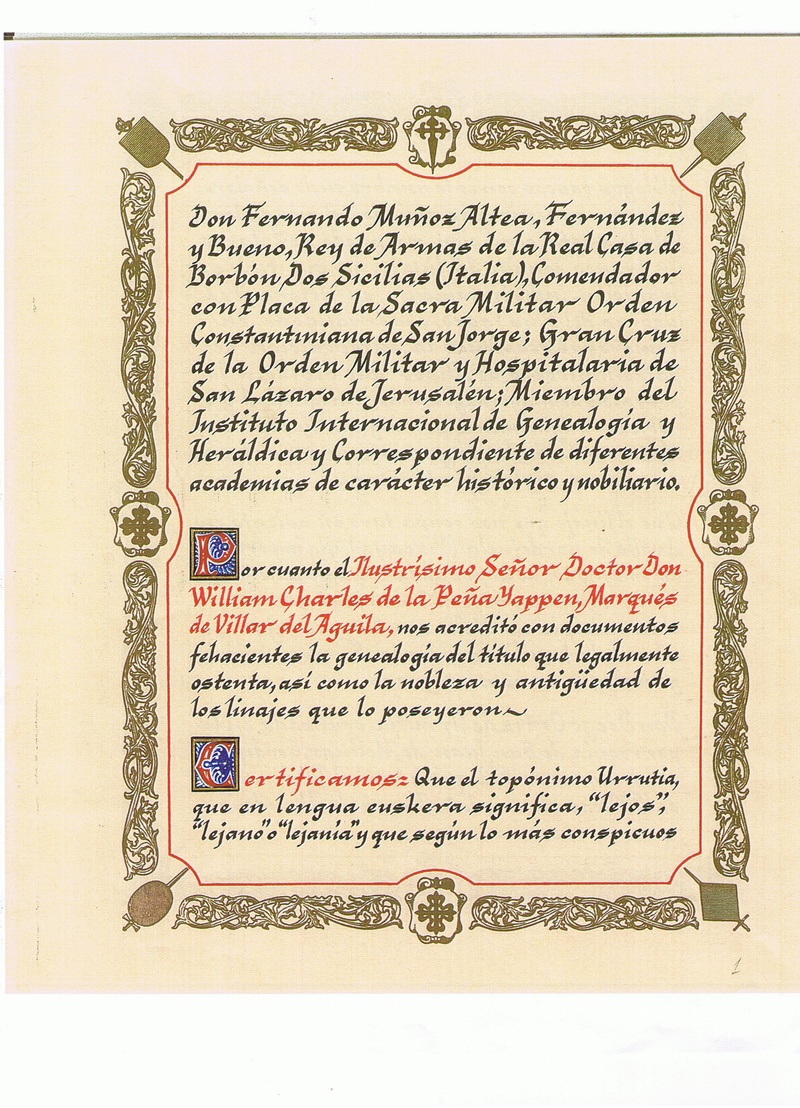 Don Fernando Muñoz Altea, Fernández
y Bueno, Rey de Armas de la Real Casa de
Borbón Dos Sicilias (Italia), Comendador
con Placa de la Sacra Militar Orden
Constantiniana de San Jorge; Gran Cruz
de la Orden Militar y Hospitalaria de
San Lázaro de Jerusalén; Miembro del
Instituto Internacional de Genealogía y
Heráldica y Correspondiente de diferentes
academias de carácter histórico y nobiliario.
Por cuanto el Ilustrísimo Señor Doctor Don
William Charles de la Peña Yappen, Marqués
de Villar del Aguila, nos acreditó con documentos
fehacientes la genealogía del título que legalmente
ostenta, así como la nobleza y antigüedad de
los linajes que lo poseyeron~
Certificamos: Que el topónimo Urrutia,
que en lengua euskera significa, "lejos",
"lejano" o "lejanía" y que según lo más conspicuos
1